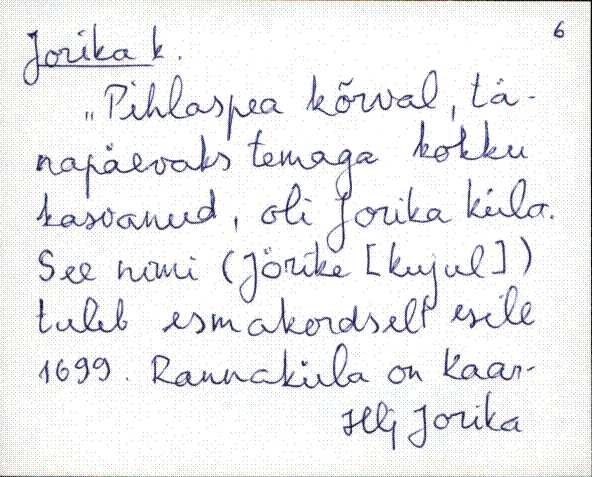 6
Jorika k.
„Pihlaspea kõrval, tä-
napäevaks temaga kokku
kasvanud, oli Jorika küla.
See nimi (Jörike [kujul])
tuleb esmakordselt esile
1699. Rannaküla on Kaar-
Hlj Jorika